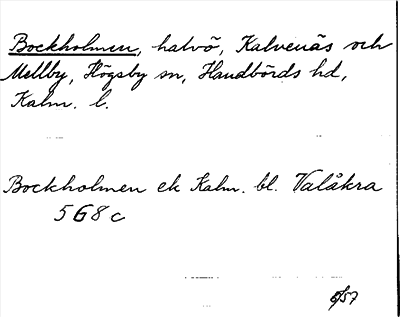 Bockholmen, halvö, Kalvenäs och
Mellby, Högsby sn, Handbörds hd,
Kalm. l.
Bockholmen ek Kalm. bl. Valåkra
568c
/57